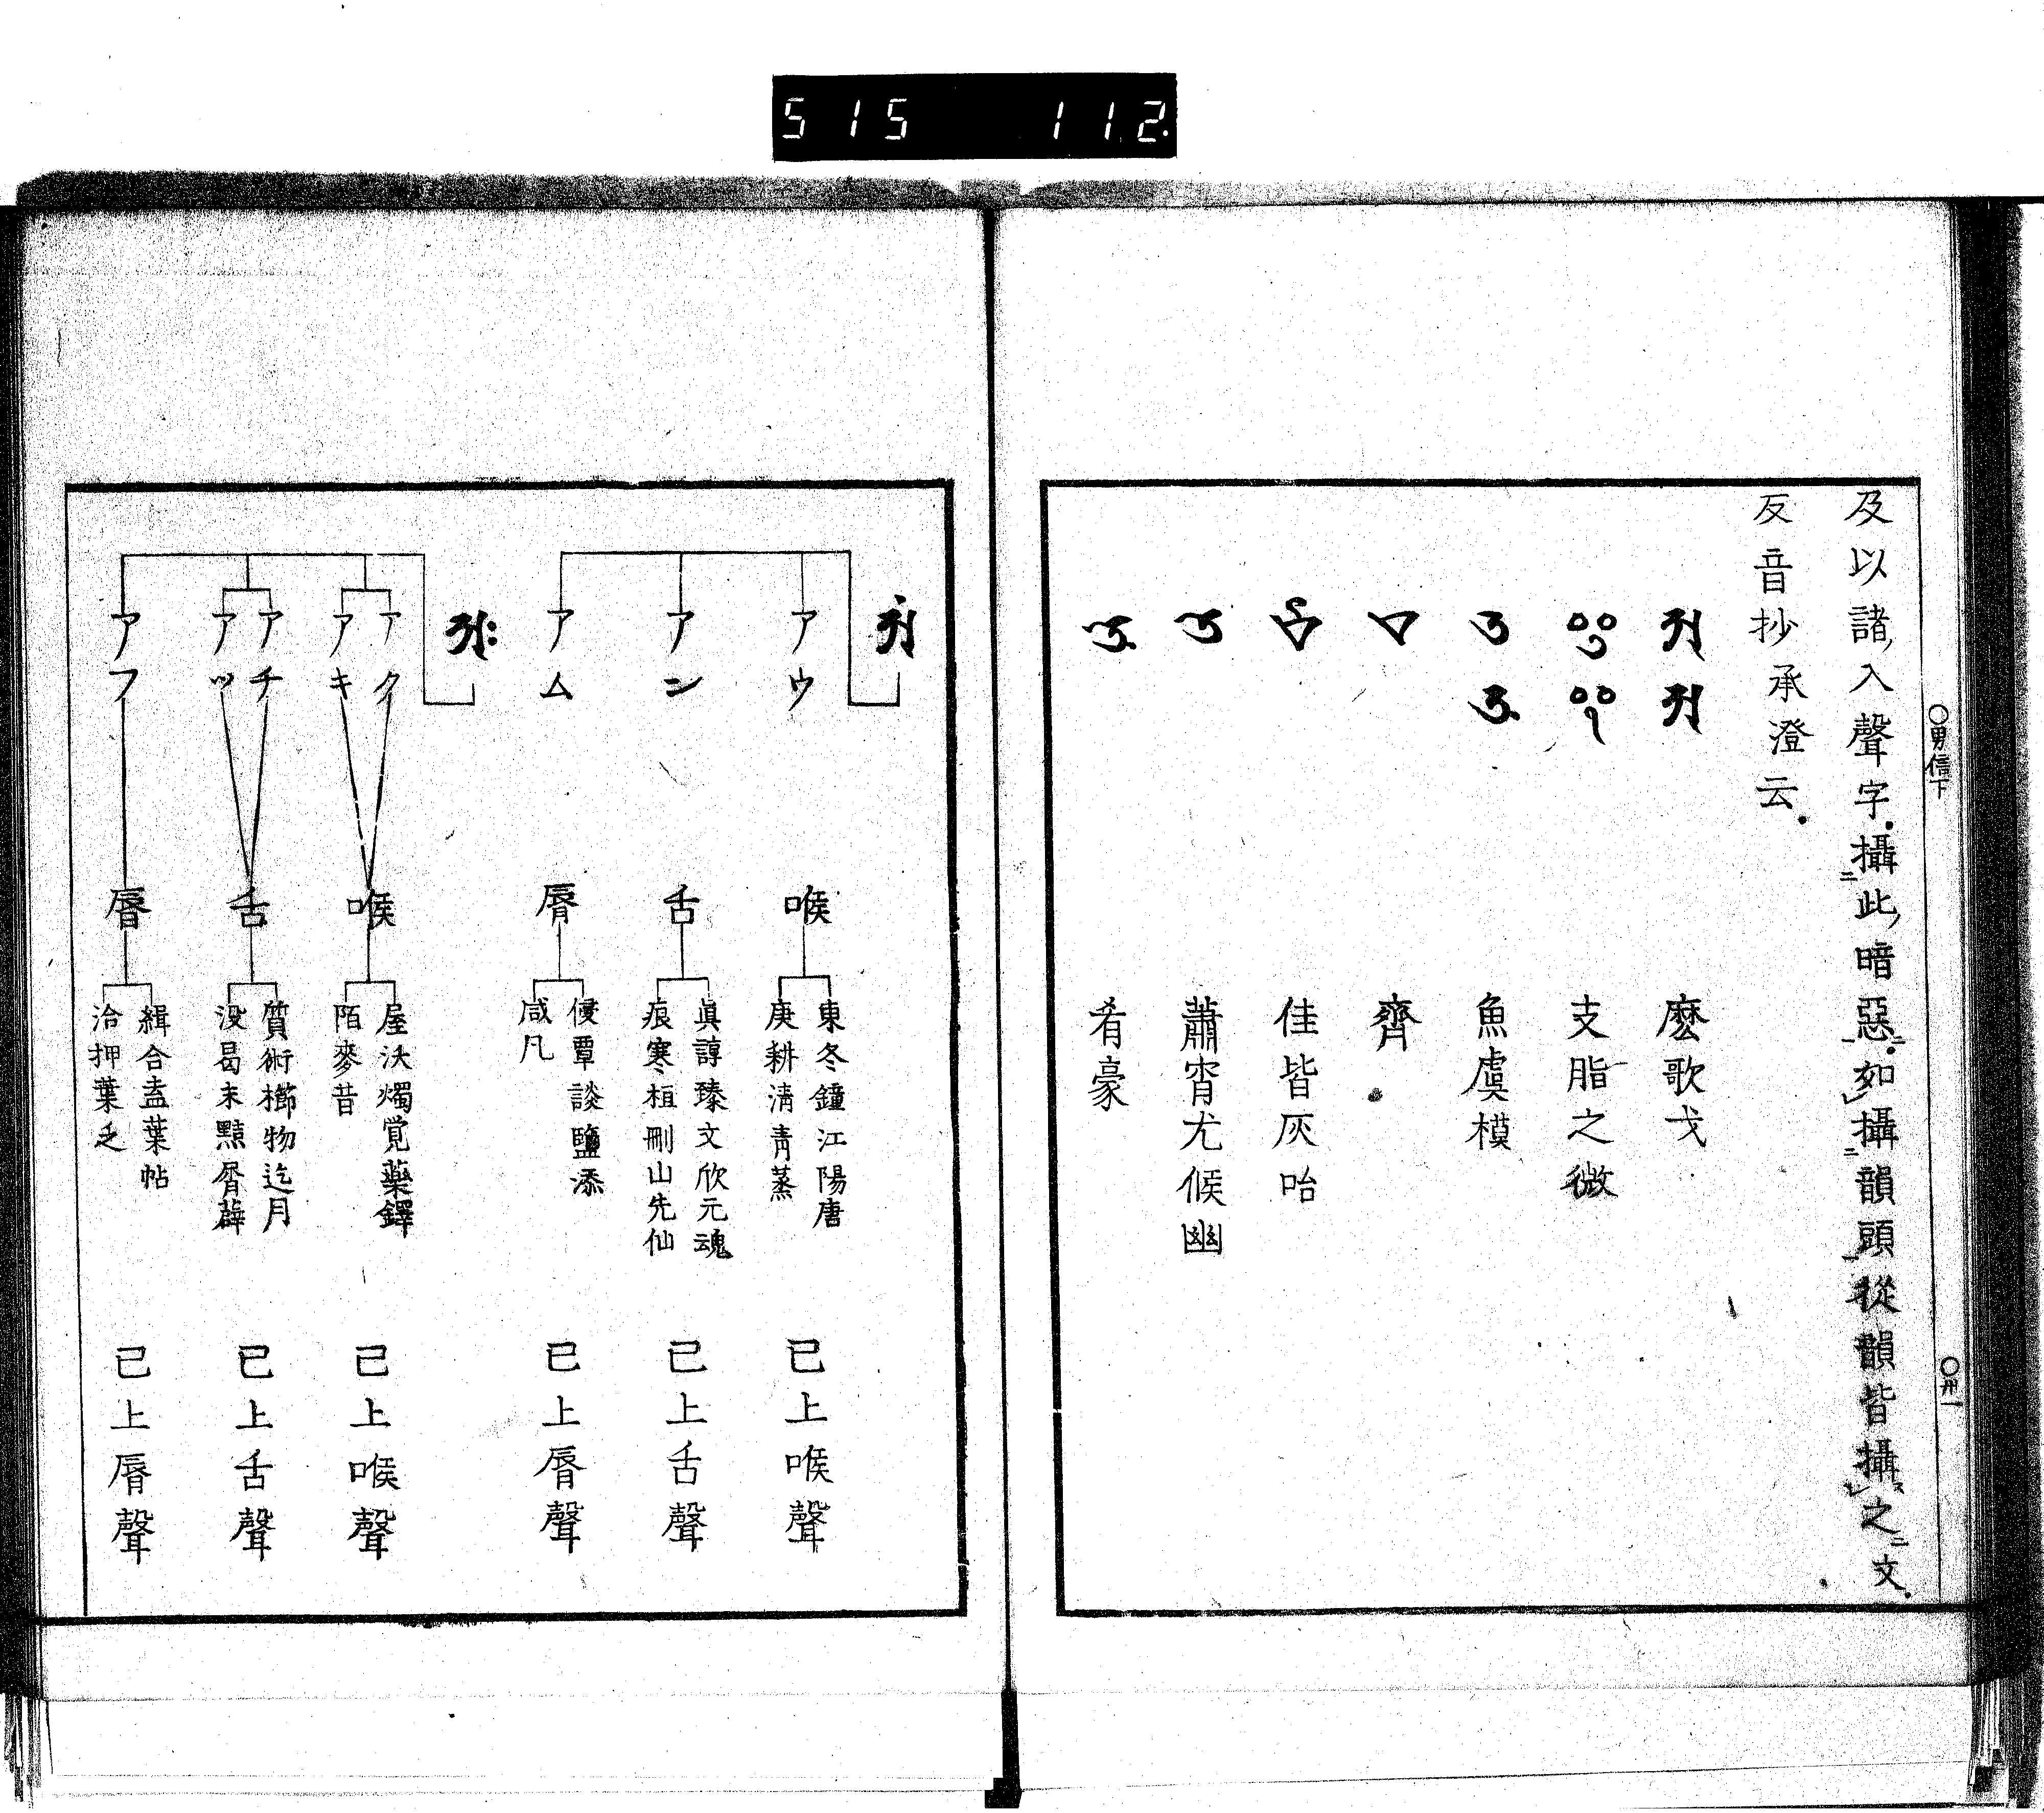 515 112.
○男信下
○卅一
及以諸入聲字攝此暗惡如攝韻頭從韻皆攝之文
反音抄承澄云
𑖀 𑖁 麼歌戈
𑖂 𑖃 支脂之微
𑖄 𑖅 魚虞模
𑖊 齊
𑖋 佳皆灰咍
𑖌 蕭宵尤候幽
𑖌 肴豪
𑖀𑖽
アウ 喉 東冬鐘江陽唐 庚耕淸靑蒸 已上喉聲
アン 舌 眞諄臻文欣元魂 痕寒桓刪山先仙 已上舌聲
アム 脣 侵覃談鹽添 咸凡 已上脣聲
𑖀𑖾
アク アキ 喉 屋沃燭覚藥鐸 陌麥昔 已上喉聲
アチ アツ 舌 質術櫛物迄月 没曷末黠屑薜 已上舌聲
アフ 脣 緝合盍葉帖 洽押葉乏 已上脣聲